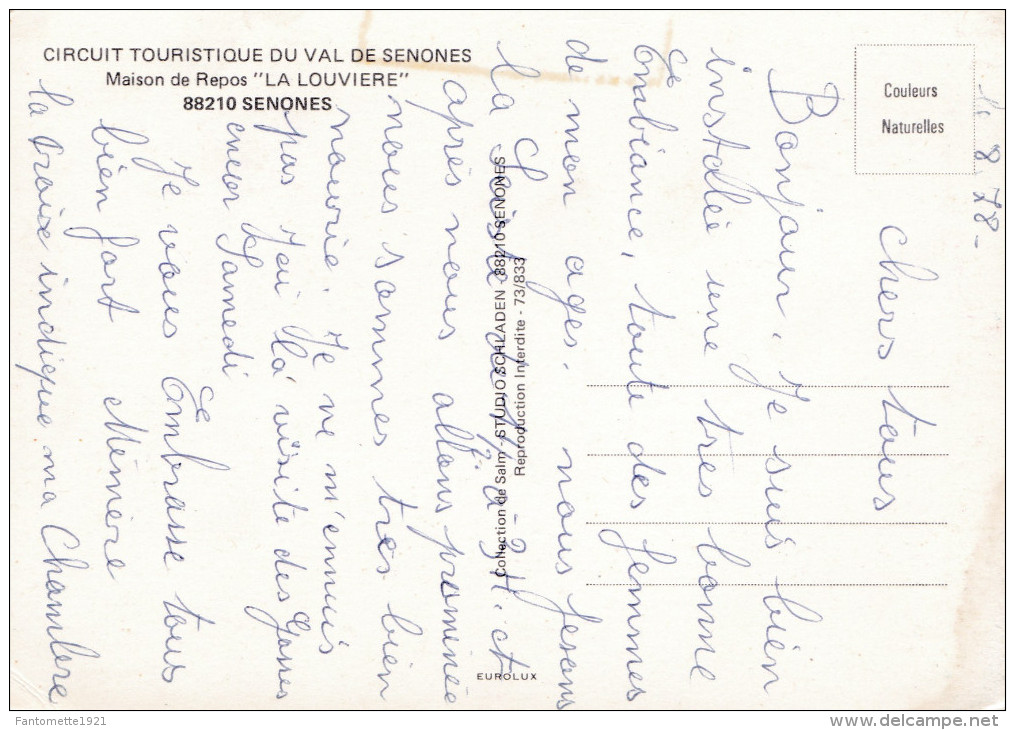 CIRCUIT TOURISTIQUE DU VAL DE SENONES
Maison de Repos "LA LOUVIERE"
88210 SENONES
Couleurs
Naturelles
8 78-
Chers tous
Bonjour. Je suis bien
installée une tres bonne
ambiance, toute des femmes
de mon ages. nous fesons
la Sieste - 2H. et
après nous allons promenée
nous sommes tres bien
nourrie. Je ne m'ennuis
pas J'ai La visite des Gosses
encor Samedi
Je vous Embrasse tous
bien fort Mémère
la Croix indique ma Chambre
Collection de Salm - STUDIO SCHLADEN - 88210 SENONES
Reproduction Interdite - 73/833
EUROLUX
Fantomette1921
delcampe.net